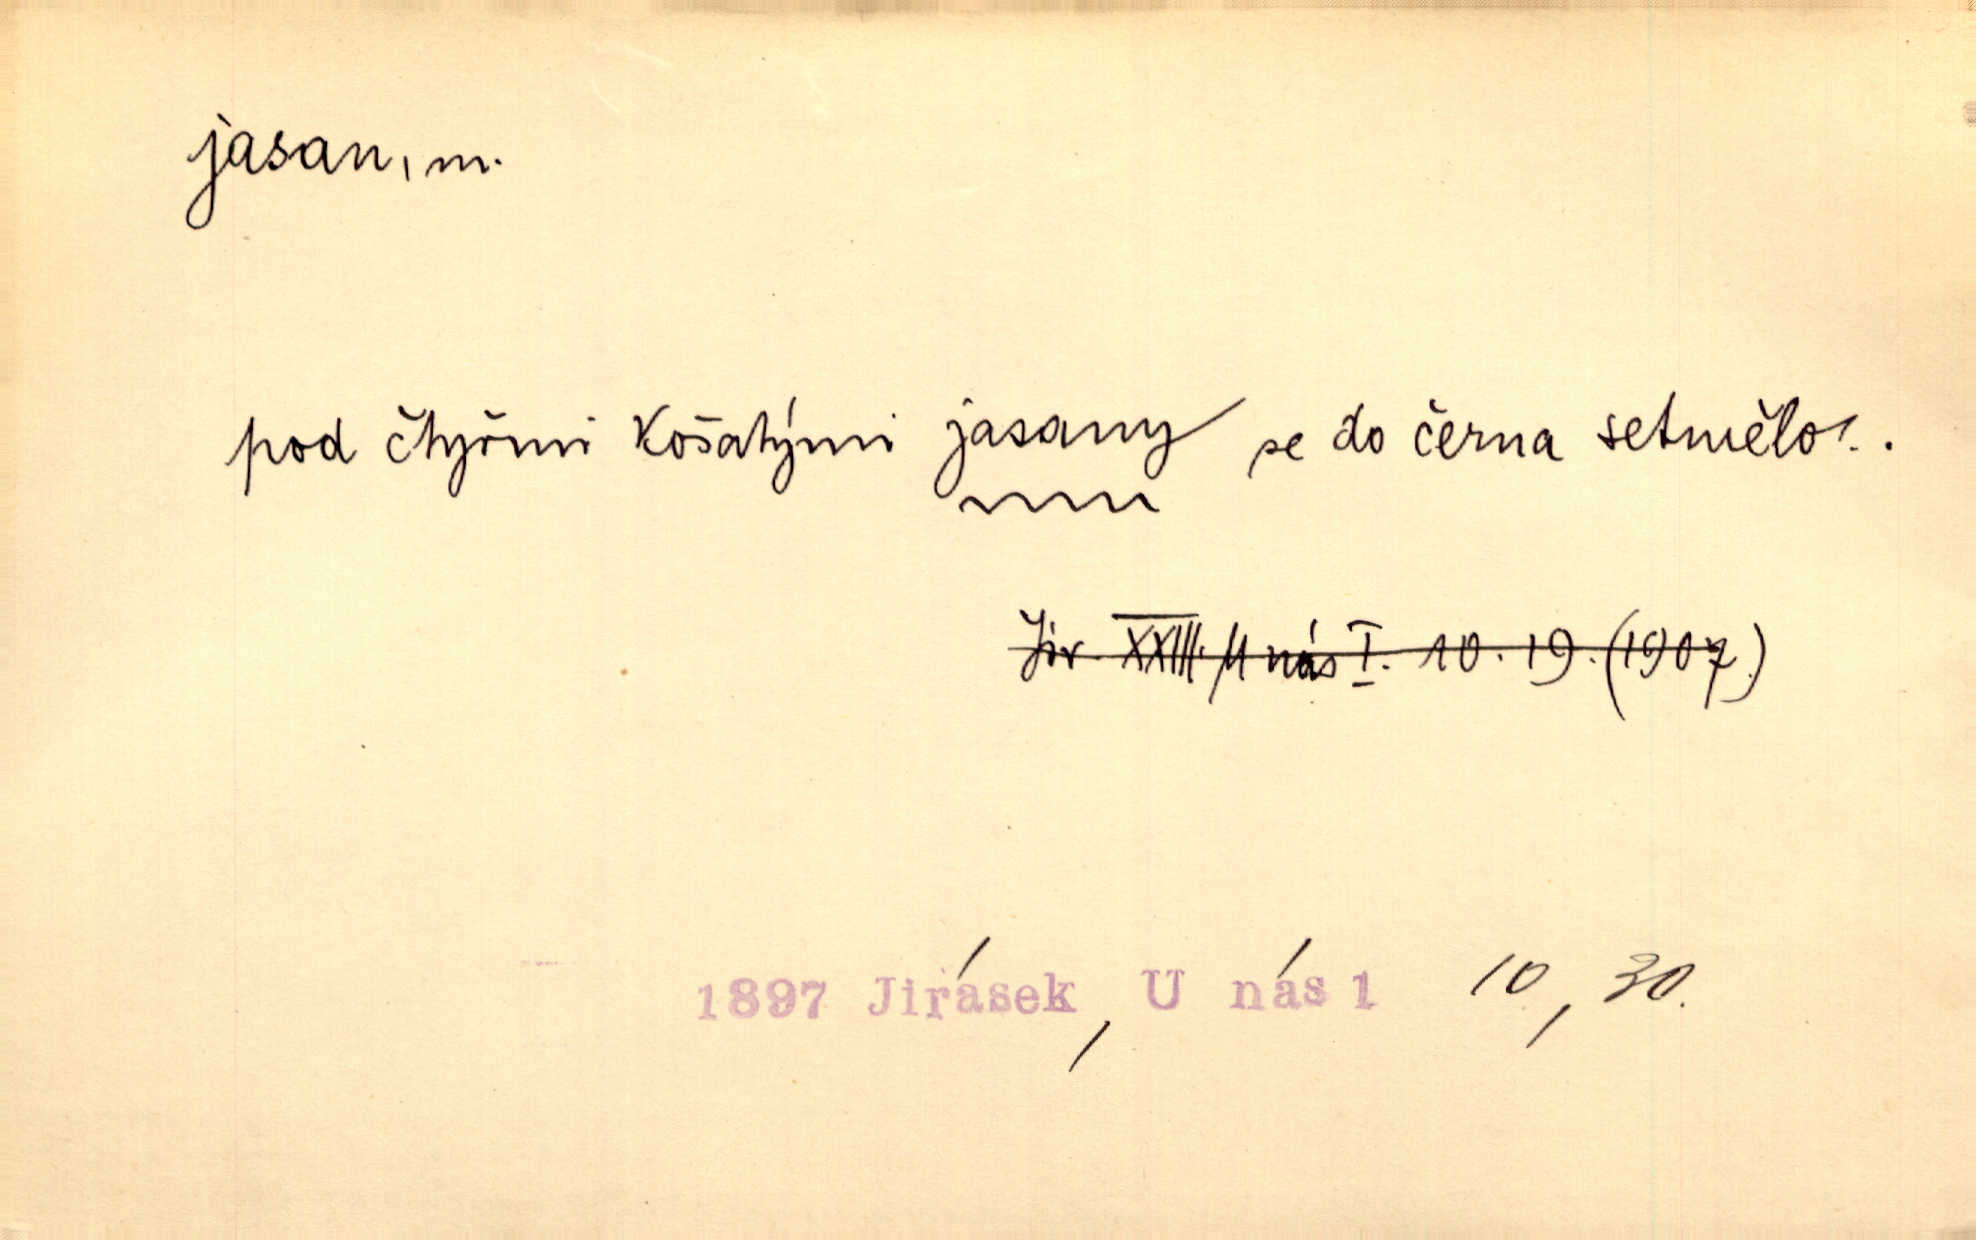 jasan, m.
pod čtyřmi košatými jasany se do černa setmělo..
Jir. XXIII. U nás I. 10. 19. (1907)
1897 Jirásek, U nás 1 10, 30.